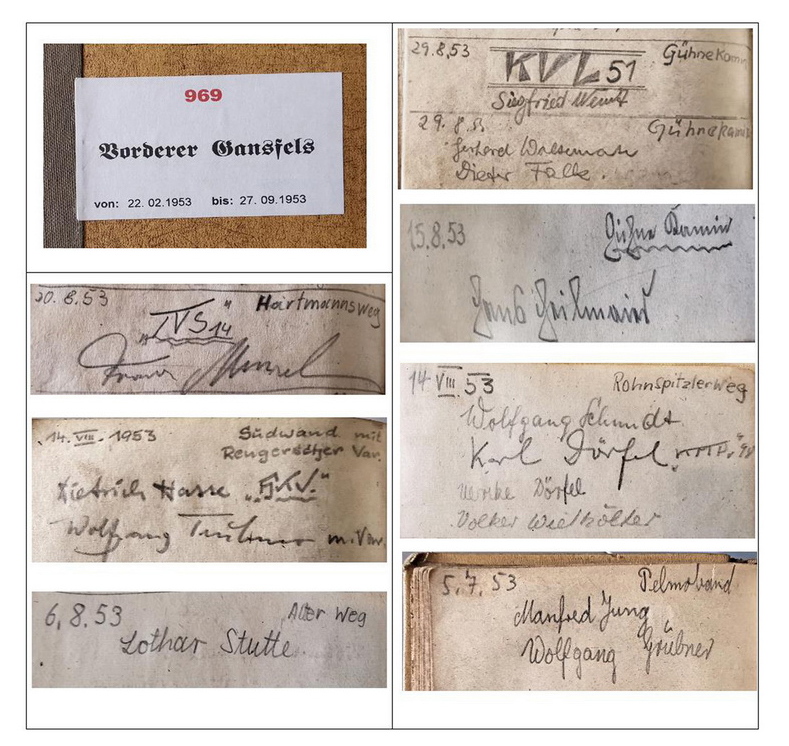 969
Vorderer Gansfels
von: 22. 02.1953 bis: 27. 09.1953
20. 8. 53 Hartmannsweg
"TVS 14"
14. VIII. 1953 Südwand mit
Rengerscher Var.
Dietrich Hasse
Wolfgang m. Var.
6. 8. 53 Alter Weg
Lothar Stutte
29.8.53 Gühnekamin
KVL 51
Siegfried
29. 8. 53 Gühnekamin
Gerhard
Dieter Falke.
15.8.53 Gühne Kamin
Hans Heilmaier
14 VIII 53 Rohnspitzlerweg
Wolfgang Schmidt
Karl Dörfel
Ulrike Dörfel
Volker
5. 7. 53 Pelmoband
Manfred Jung
Wolfgang Grübner